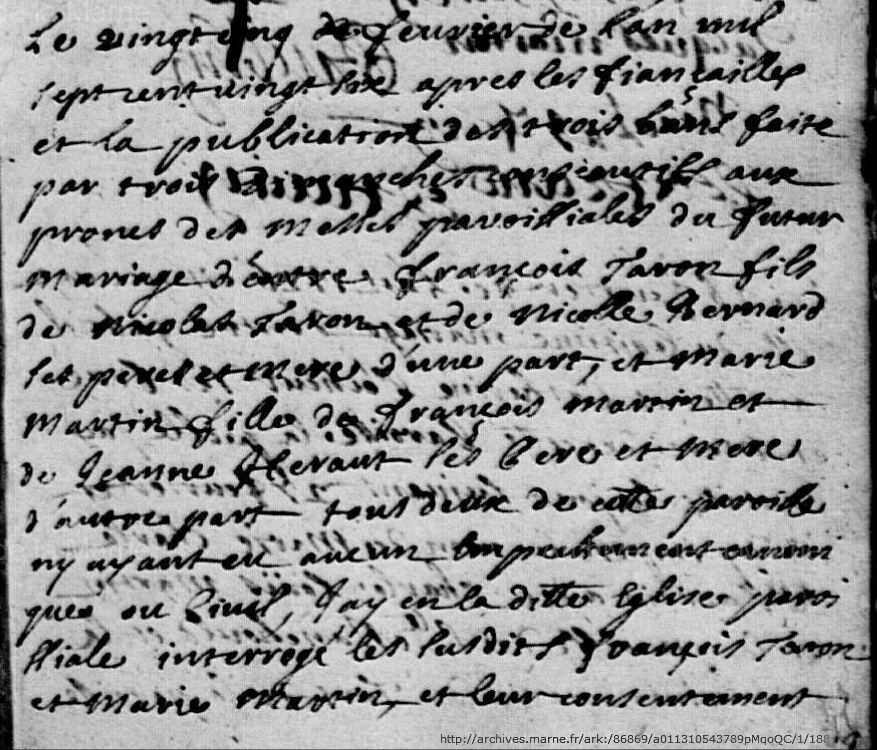 Le vingtcinq de fevrier de l'an mil
sept cent vingt six apres les fiançailles
et la publication des trois bans faite
par trois dimanches consecutifs aux
prones des Messes paroissiales du futur
mariage d'entre François Taron fils
de Nicolas Taron et de Nicolle Bernard
ses pere et mere d'une part, et Marie
Martin fille de François Martin et
de Jeanne les pere et mere
d'autre part tous deux de cette paroisse
ny ayant eu aucun empechement canoni
que ou Civil, J'ay en la ditte Eglise paroi
ssiale interrogé les susdits François Taron
et Marie Martin, et leur consentement
http://archives.marne.fr/ark:/86869/a011310543789pMqoQC/1/188